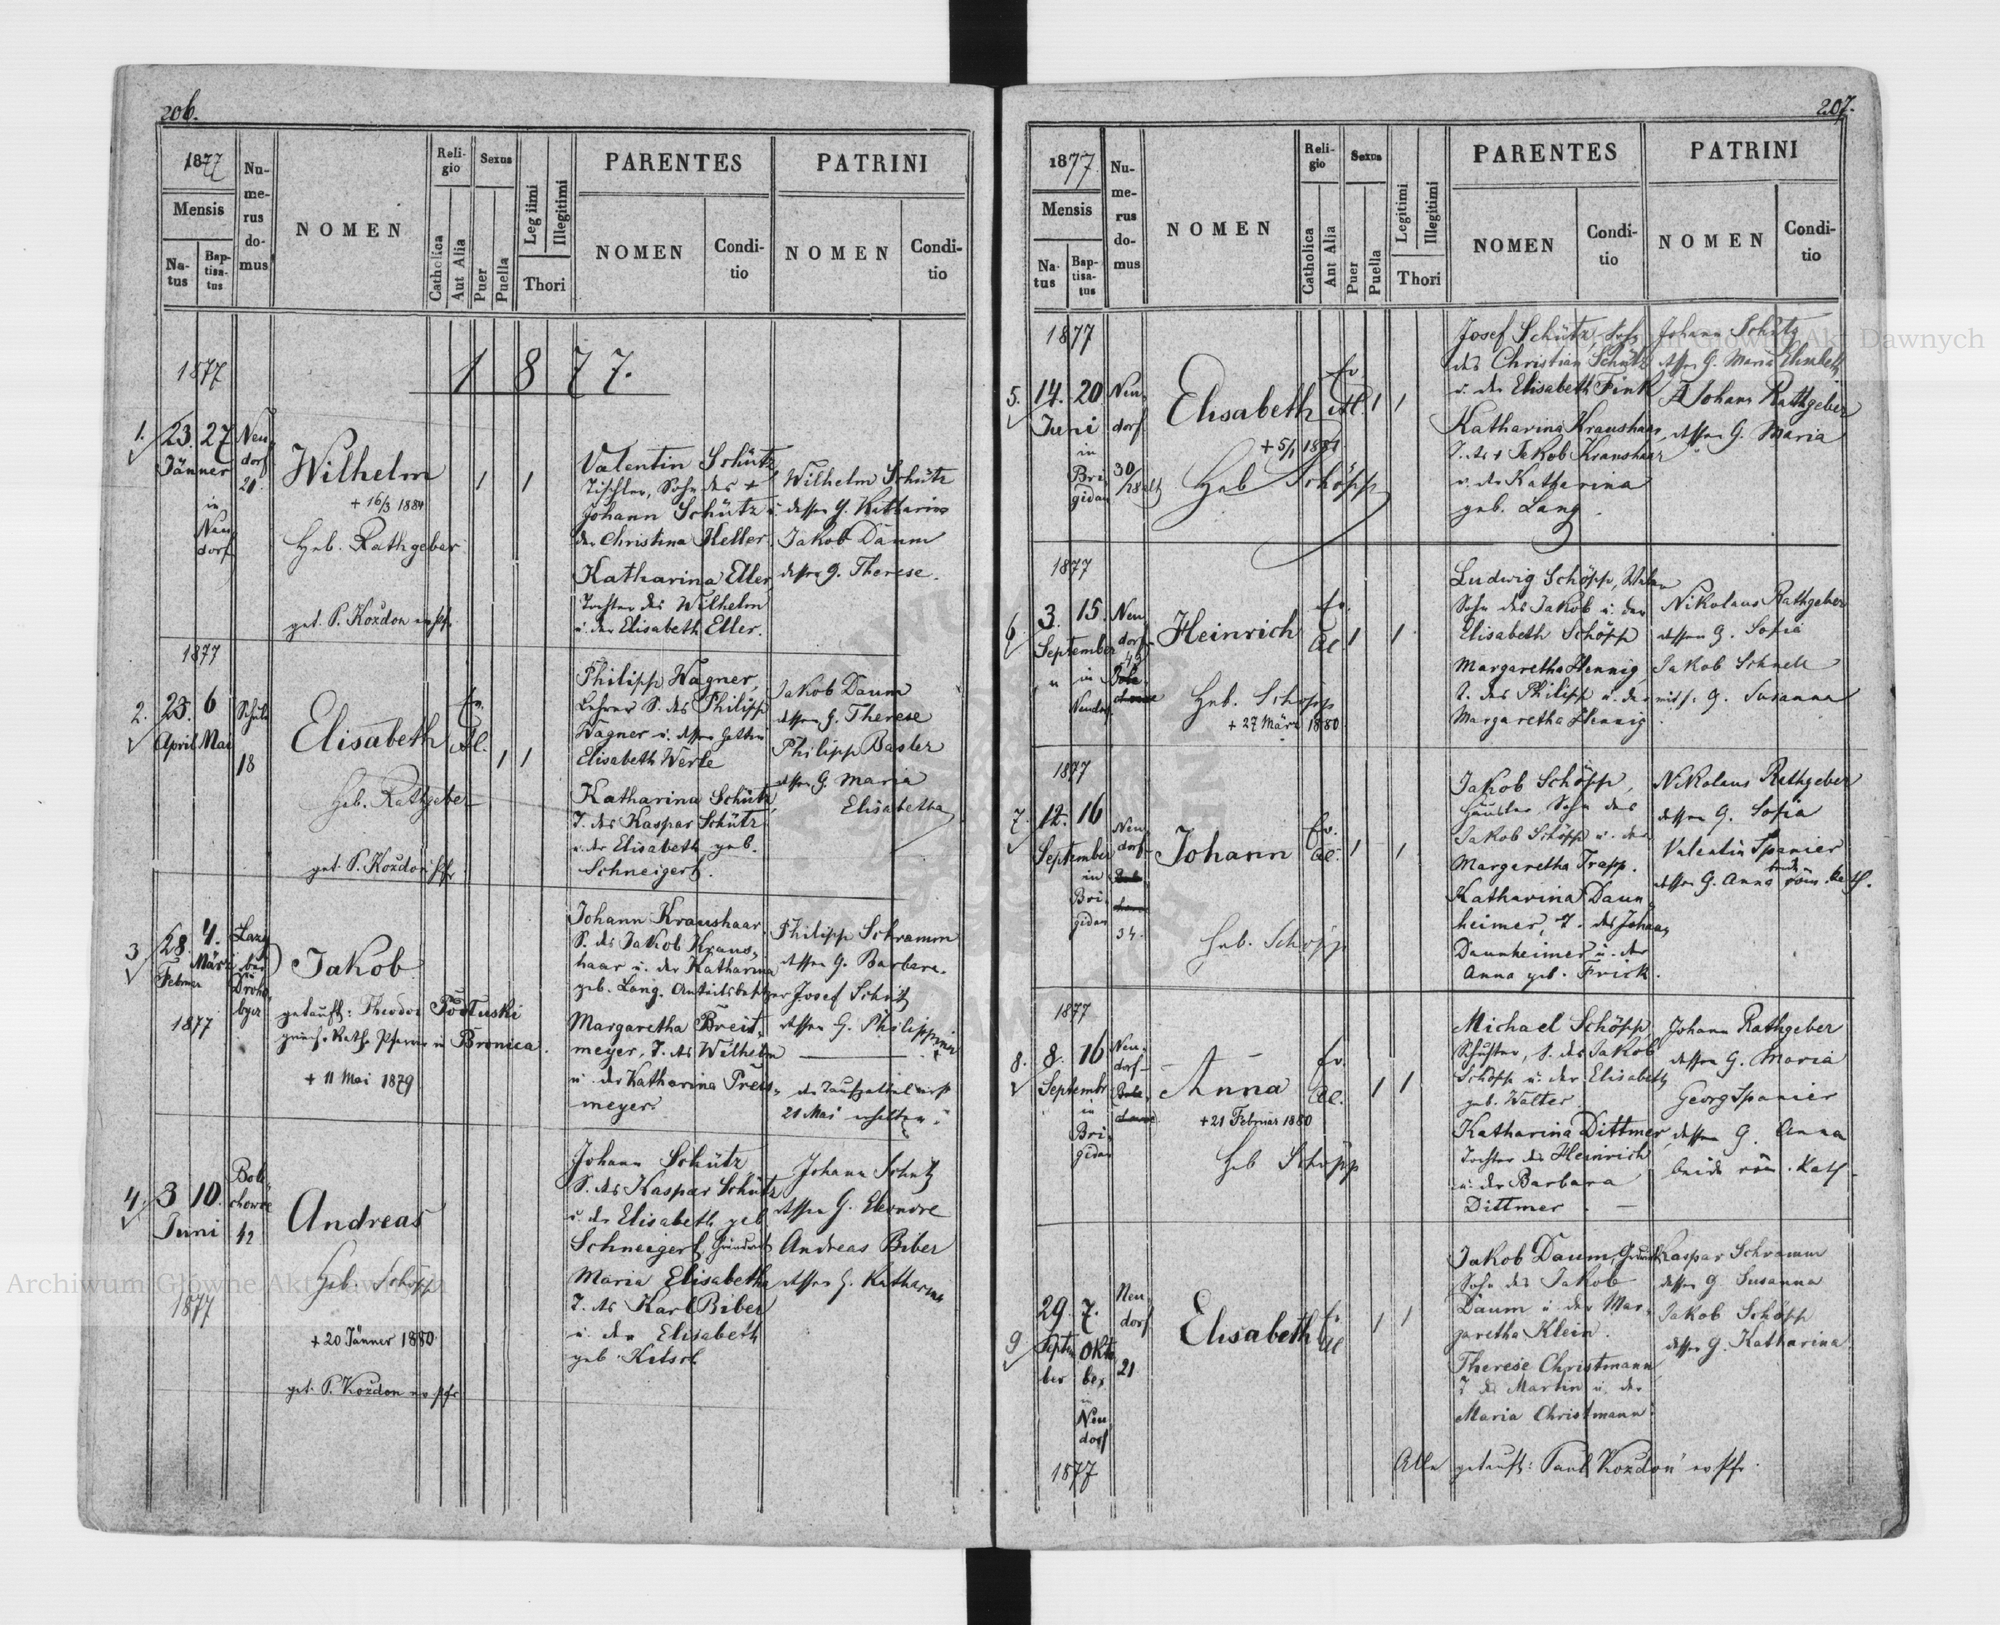 206.
1877
Mensis
Na-
tus
Bap-
tisa-
tus
Nu-
me-
rus
do-
mus
NOMEN
Reli-
gio
Catholica
Aut Alia
Sexus
Puer
Puella
Legitimi
Illegitimi
Thori
PARENTES
NOMEN
Condi-
tio
PATRINI
NOMEN
Condi-
tio
1877
1877.
1.
23. 27
Jänner
in
Neu
dorf
Neu
dorf
21.
Wilhelm
+ 16/3 1884
Heb. Rathgeber
get. P. Kozdon ev Pfr.
1 1
Valentin Schütz
Tischler, Sohn des +
Johann Schütz u.
der Christina Keller.
Katharina Eller
Tochter des Wilhelm
u. der Elisabeth Eller.
Wilhelm Schütz
dessen G. Katharina
Jakob Daum
dessen G. Therese.
1877
2.
23. 6
April Mai
Schule
18
Elisabeth
ev.
Al.
1 1
Heb. Rathgeber
get. P. Kozdon Pfr
Philipp Wagner,
Lehrer S. des Philipp
Wagner u. dessen Gattin
Elisabeth Werle
Katharina Schütz,
T. des Kaspar Schütz
u. der Elisabeth geb.
Schneigert.
Jakob Daum
dessen G. Therese
Philipp Basler
dessen G. Maria
Elisabetha
3
28. 4.
Februar März
1877
Jakob
getauft: Theodor Podluski
griech. Kath. Pfarrer in Bronica.
+ 11 Mai 1879
Johann Kraushaar
S. des Jakob Kraus-
haar u. der Katharina
geb. Lang. Antheilsbesitzer
Margaretha Breit-
meyer, T. des Wilhelm
u. der Katharina Breit-
meyer.
Philipp Schramm
dessen G. Barbara.
Josef Schütz
dessen G. Philippina
21 Mai erhalten
4.
3 10.
Juni
1877
Bole-
chowce
42
Andreas
Heb. Schöpp
+ 20 Jänner 1880
get. P. Kozdon ev Pfr
Johann Schütz
S. des Kaspar Schütz
u. der Elisabeth geb
Schneigert,
Maria Elisabetha
T. des Karl Biber
u. der Elisabeth
geb.
Johann Schütz
dessen G. Eleonore
Andreas Biber
dessen G. Katharina
207.
1877
Mensis
Na-
tus
Bap-
tisa-
tus
Nu-
me-
rus
do-
mus
NOMEN
Reli-
gio
Catholica
Aut Alia
Sexus
Puer
Puella
Legitimi
Illegitimi
Thori
PARENTES
NOMEN
Condi-
tio
PATRINI
NOMEN
Condi-
tio
1877
5.
14. 20
Juni
in
Bri-
gidau
Neu-
dorf
Elisabeth
ev
Al.
1 1
+ 5/1 1881
Heb Schöpp
Josef Schütz, Sohn
des Christian Schütz
u. der Elisabeth Fink
Katharina Kraushaar,
T. des + Jakob Kraushaar
u. der Katharina
geb. Lang.
Johann Schütz
dessen G. Maria Elisabeth
Johann Rathgeber
dessen G. Maria
1877
6.
3. 15.
September
in
Neudorf
Neu
dorf
Heinrich
ev.
Al
1 1
Heb. Schöpp
+ 27 März 1880
Ludwig Schöpp,
Sohn des Jakob u. der
Elisabeth Schöpp
Margaretha Hennig
T. des Philipp u. der
Margaretha Hennig
Nikolaus Rathgeber
dessen G. Sofia
Jakob Schnell
mit s. G. Susanna
1877
7.
12. 16
September
in
Bri-
gidau
Neu-
dorf
34.
Johann
Ev.
Al.
1 1
Heb. Schöpp
Jakob Schöpp,
Häusler, Sohn des
Jakob Schöpp u. der
Margaretha Trapp.
Katharina Daun-
heimer, T. des Johann
Daunheimer u. der
Anna geb. Frick.
Nikolaus Rathgeber
dessen G. Sofia
Valentin Spanier
dessen G. Anna beide röm. kath.
1877
8.
8. 16
September
in
Bri-
gidau
Neu-
dorf
Anna
Ev
Al.
1 1
+ 21 Februar 1880
Heb Schöpp
Michael Schöpp,
Schuster, S. des Jakob
Schöpp u. der Elisabeth
geb. Walter.
Katharina Dittmer,
Tochter des Heinrich
u. der Barbara
Dittmer.
Johann Rathgeber
dessen G. Maria
Georg Spanier
dessen G. Anna
beide röm. Kath.
9
29. 7.
Septem-
ber
Okto-
ber
in
Neu
dorf
1877
Neu
dorf
21
Elisabeth
Ev
Al
1 1
Jakob Daum,
Sohn des Jakob
Daum u. der Mar-
garetha Klein.
Therese Christmann
T. des Martin u. der
Maria Christmann.
Kaspar Schramm
dessen G. Susanna
Jakob Schöpp
dessen G. Katharina
Alle getauft: Paul Kozdon ev Pfr.
Archiwum Główne Akt Dawnych
Archiwum Główne Akt Dawnych